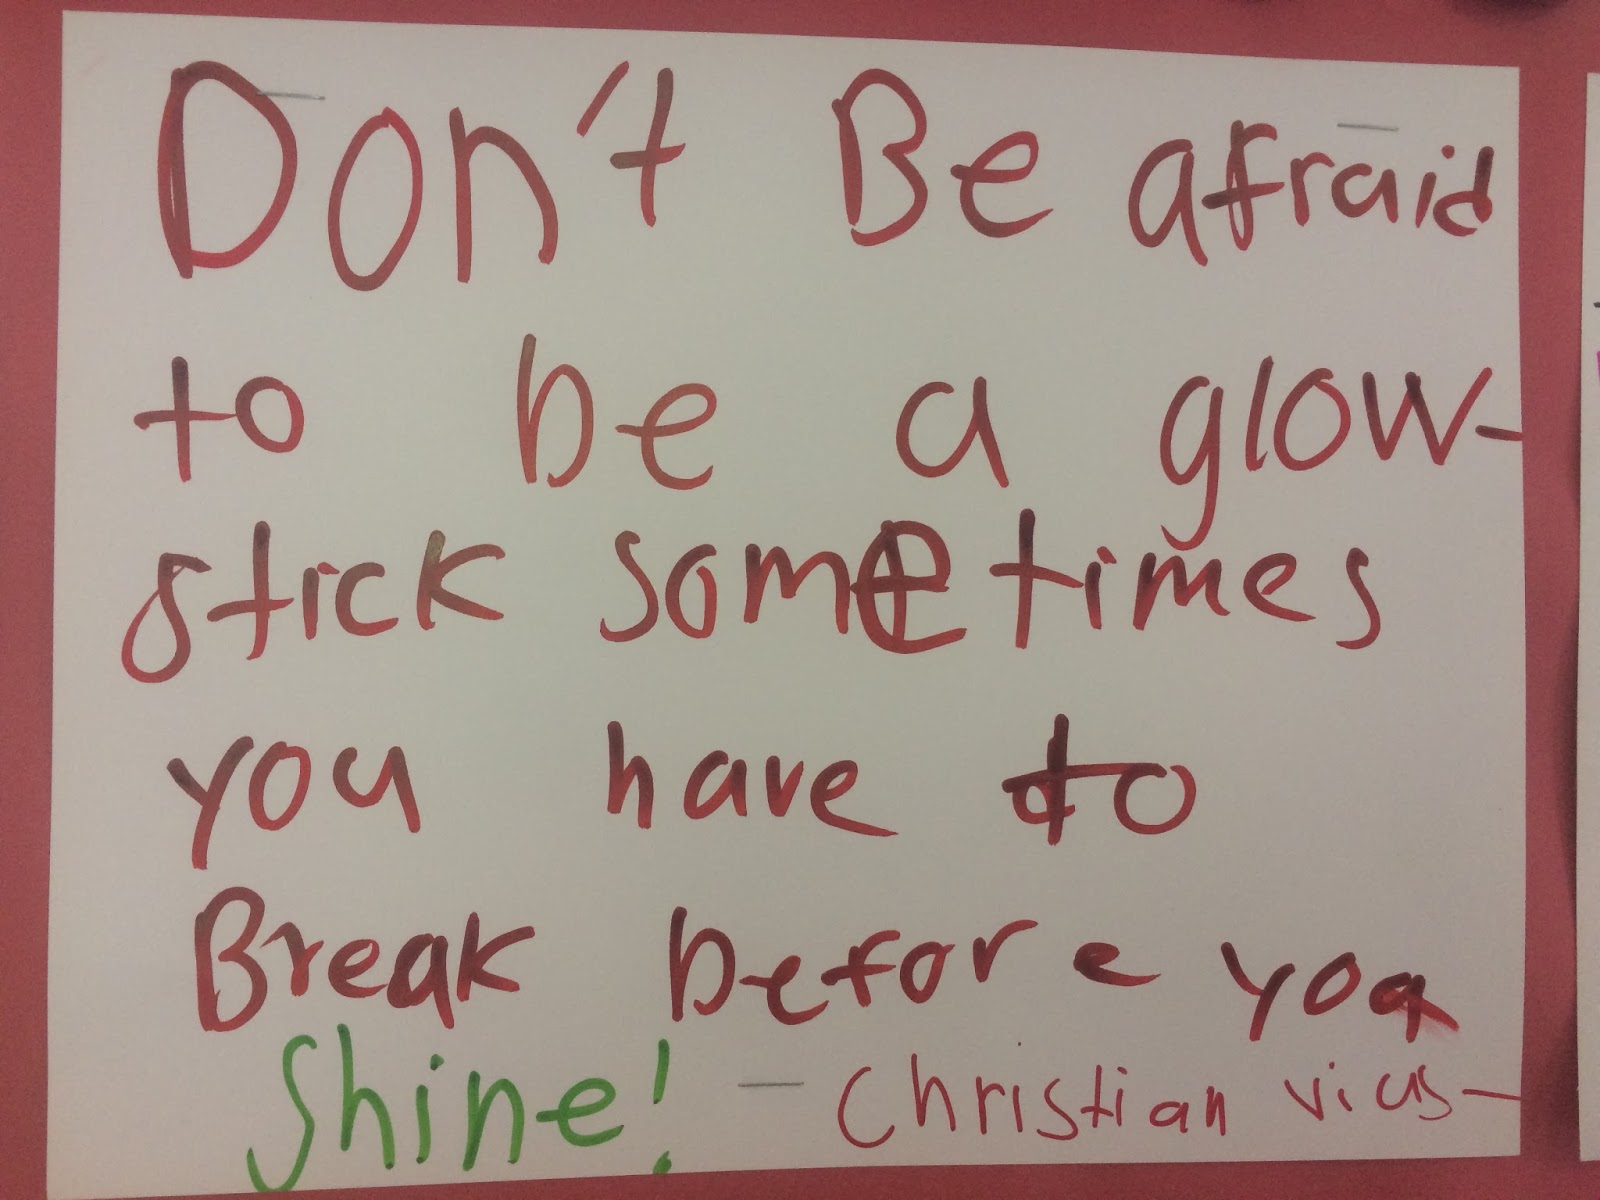 Don't Be afraid
to be a glow-
stick sometimes
you have to
Break before you
Shine! Christian vicus-